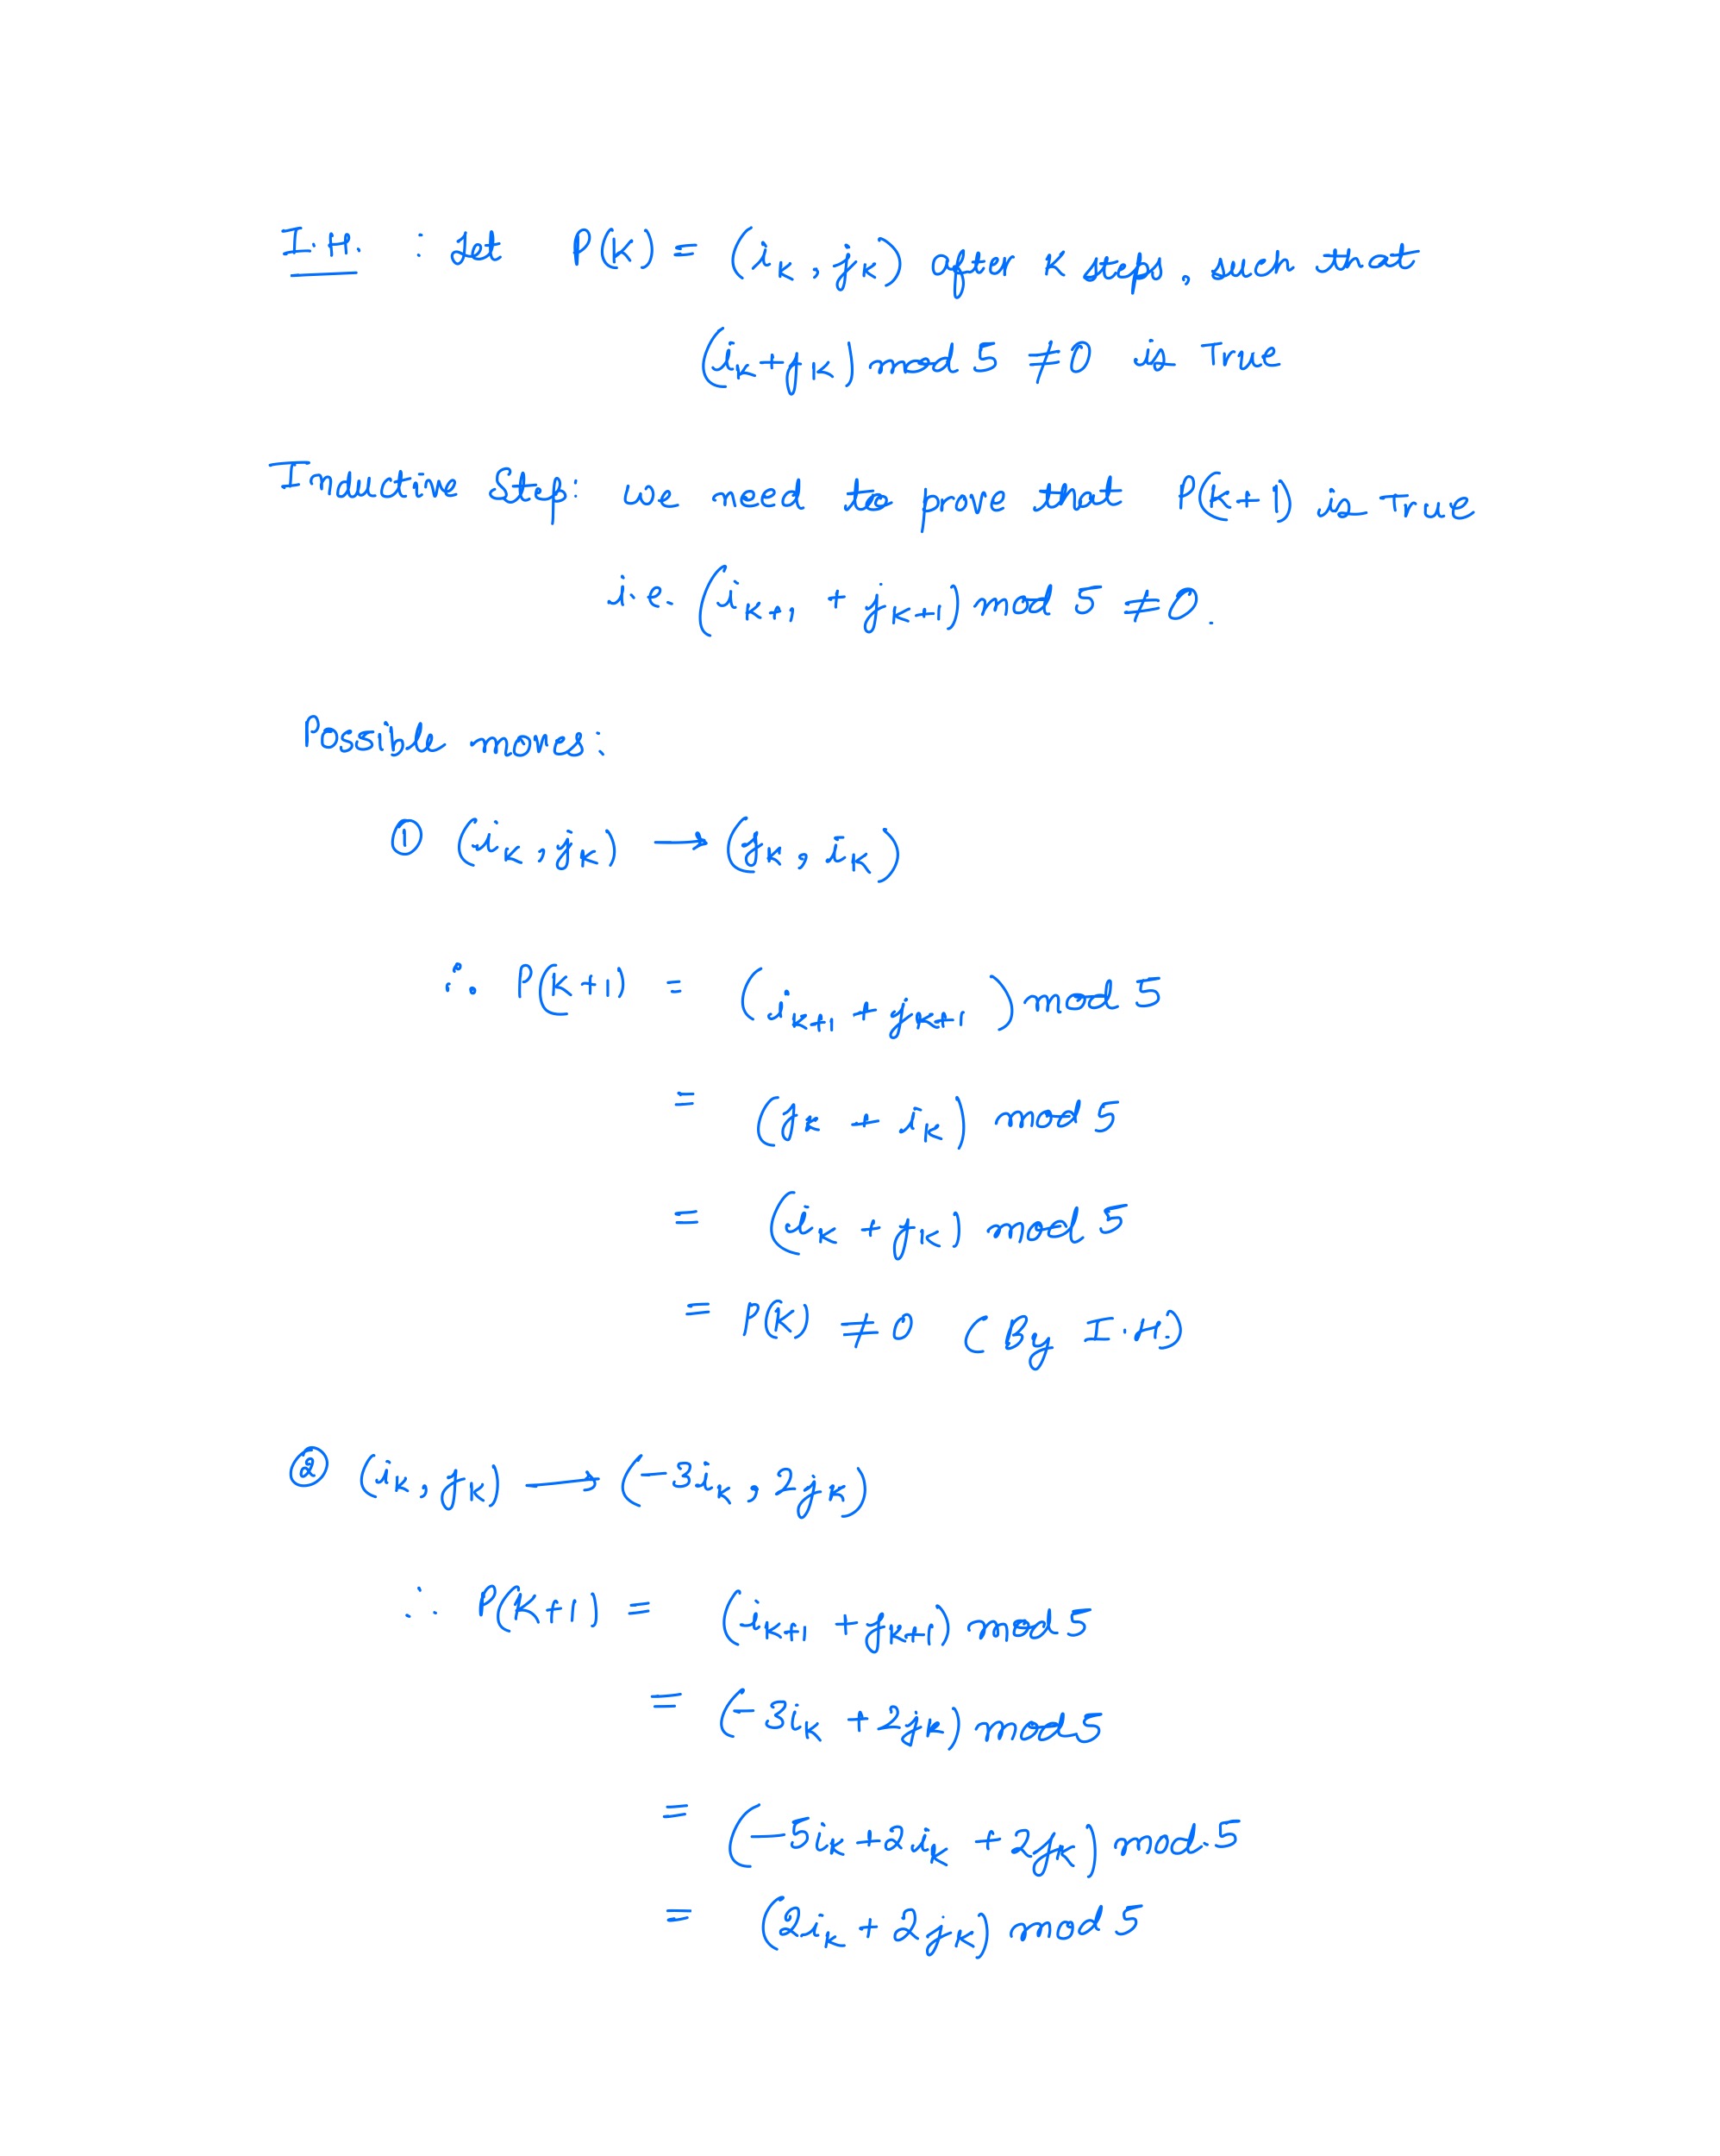 I.H. : Let P(K) = (i_K, j_K) after K steps, such that
(i_K + j_K) mod 5 ≠ 0 is True
Inductive Step: we need to prove that P(K+1) is True
i.e. (i_{K+1} + j_{K+1}) mod 5 ≠ 0.
Possible moves:
① (i_K, j_K) → (j_K, i_K)
∴ P(K+1) = (i_{K+1} + j_{K+1}) mod 5
= (j_K + i_K) mod 5
= (i_K + j_K) mod 5
= P(K) ≠ 0 (By I.H.)
② (i_K, j_K) → (-3i_K, 2j_K)
∴ P(K+1) = (i_{K+1} + j_{K+1}) mod 5
= (-3i_K + 2j_K) mod 5
= (-5i_K + 2i_K + 2j_K) mod 5
= (2i_K + 2j_K) mod 5